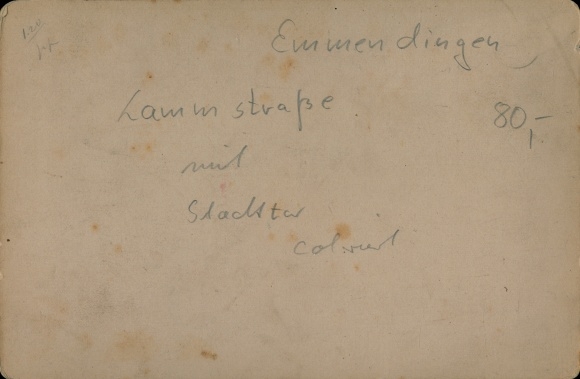 Emmendingen,
Lammstraße
80,-
mit
Stadttor
coloriert